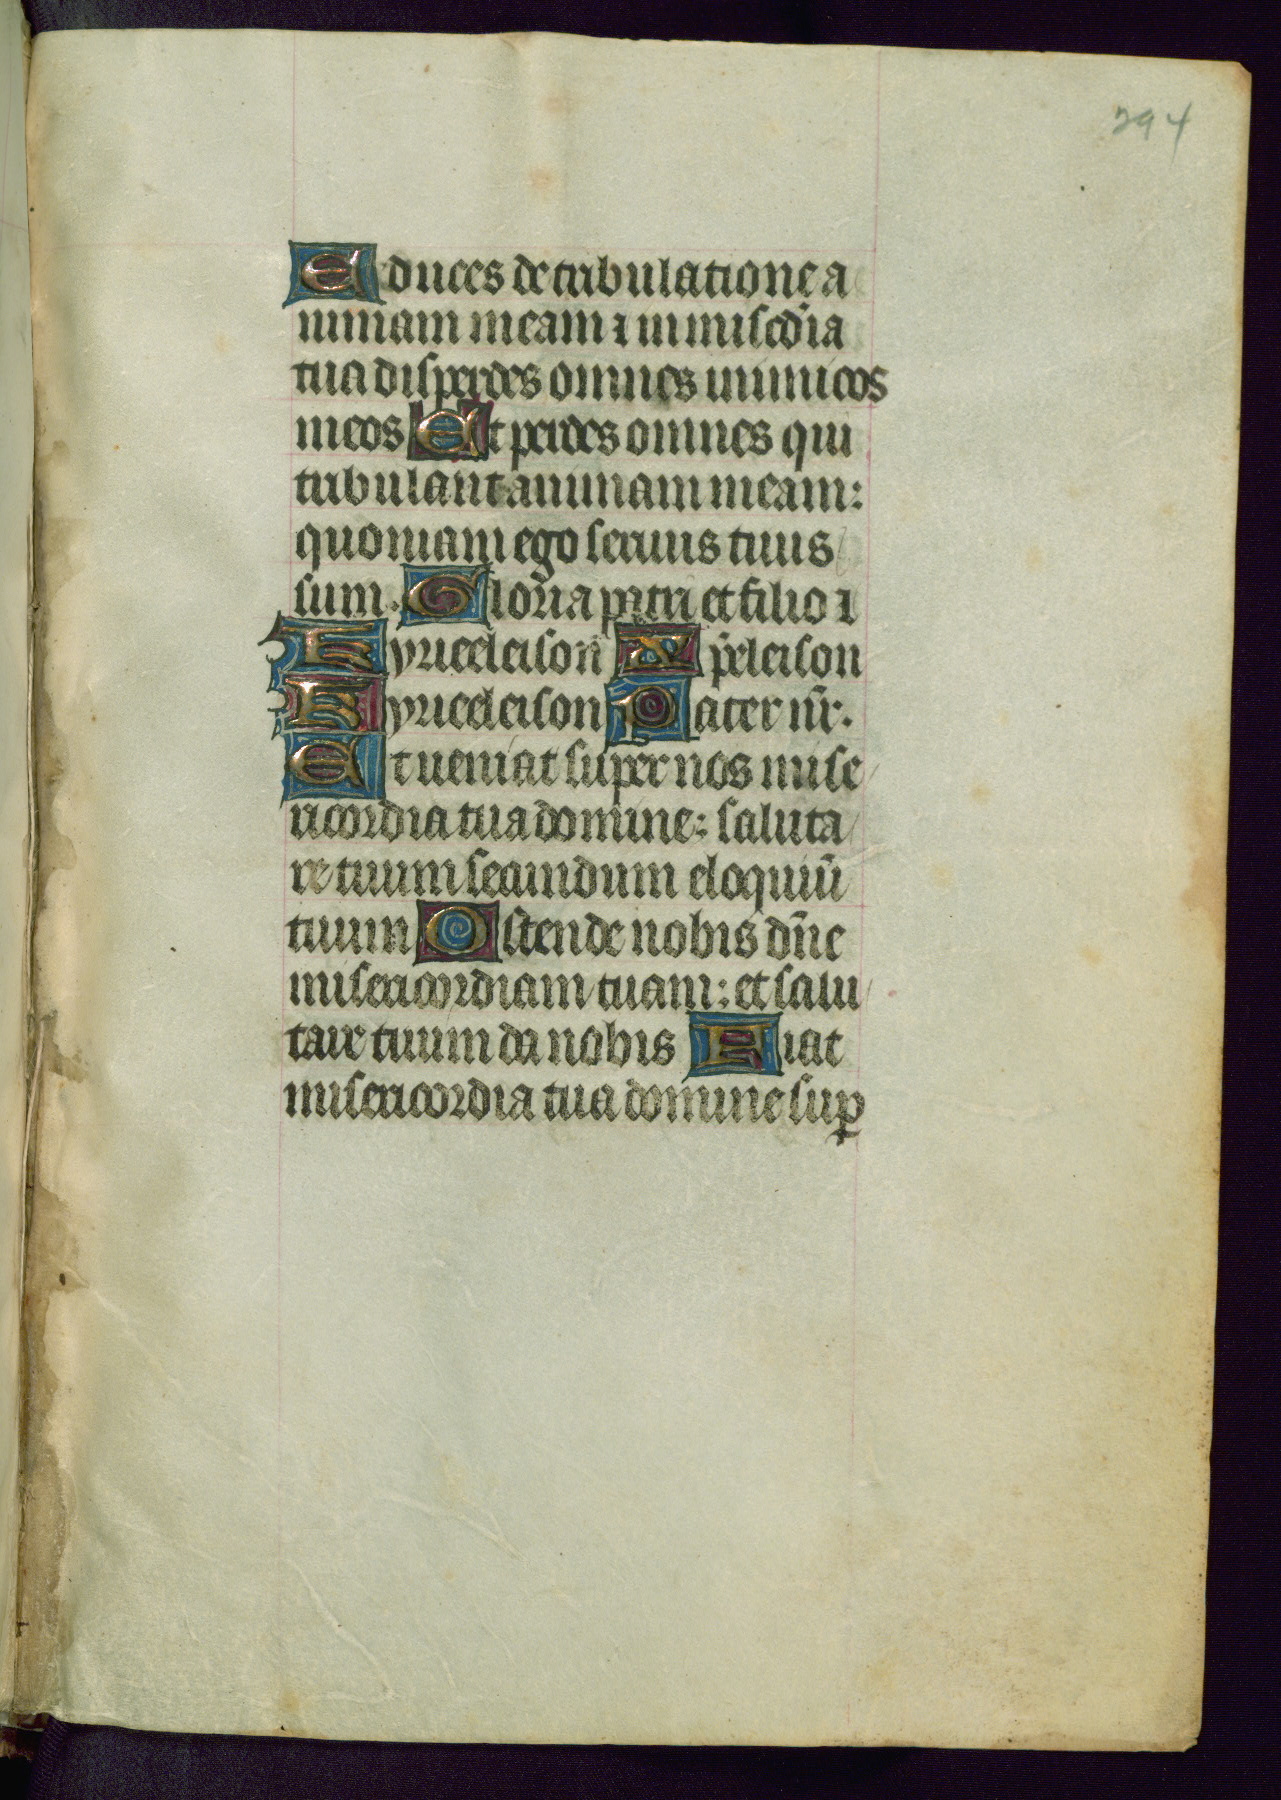 294
Educes de tribulatione a
nimam meam ⁊ in miscd̄ia
tua disperdes omnes inimicos
meos Et perdes omnes qui
tribulant animam meam:
quoniam ego seruus tuus
sum. Glor̄ia patri et filio ⁊
Kyrieeleison Xp̄eleison
Kyrieeleison Pater nr̄.
Et ueniat super nos mise
ricordia tua domine: saluta
re tuum secundum eloquiū
tuum Ostende nobis dn̄e
misericordiam tuam: et salu
tare tuum da nobis Fiat
misericordia tua domine suꝑ